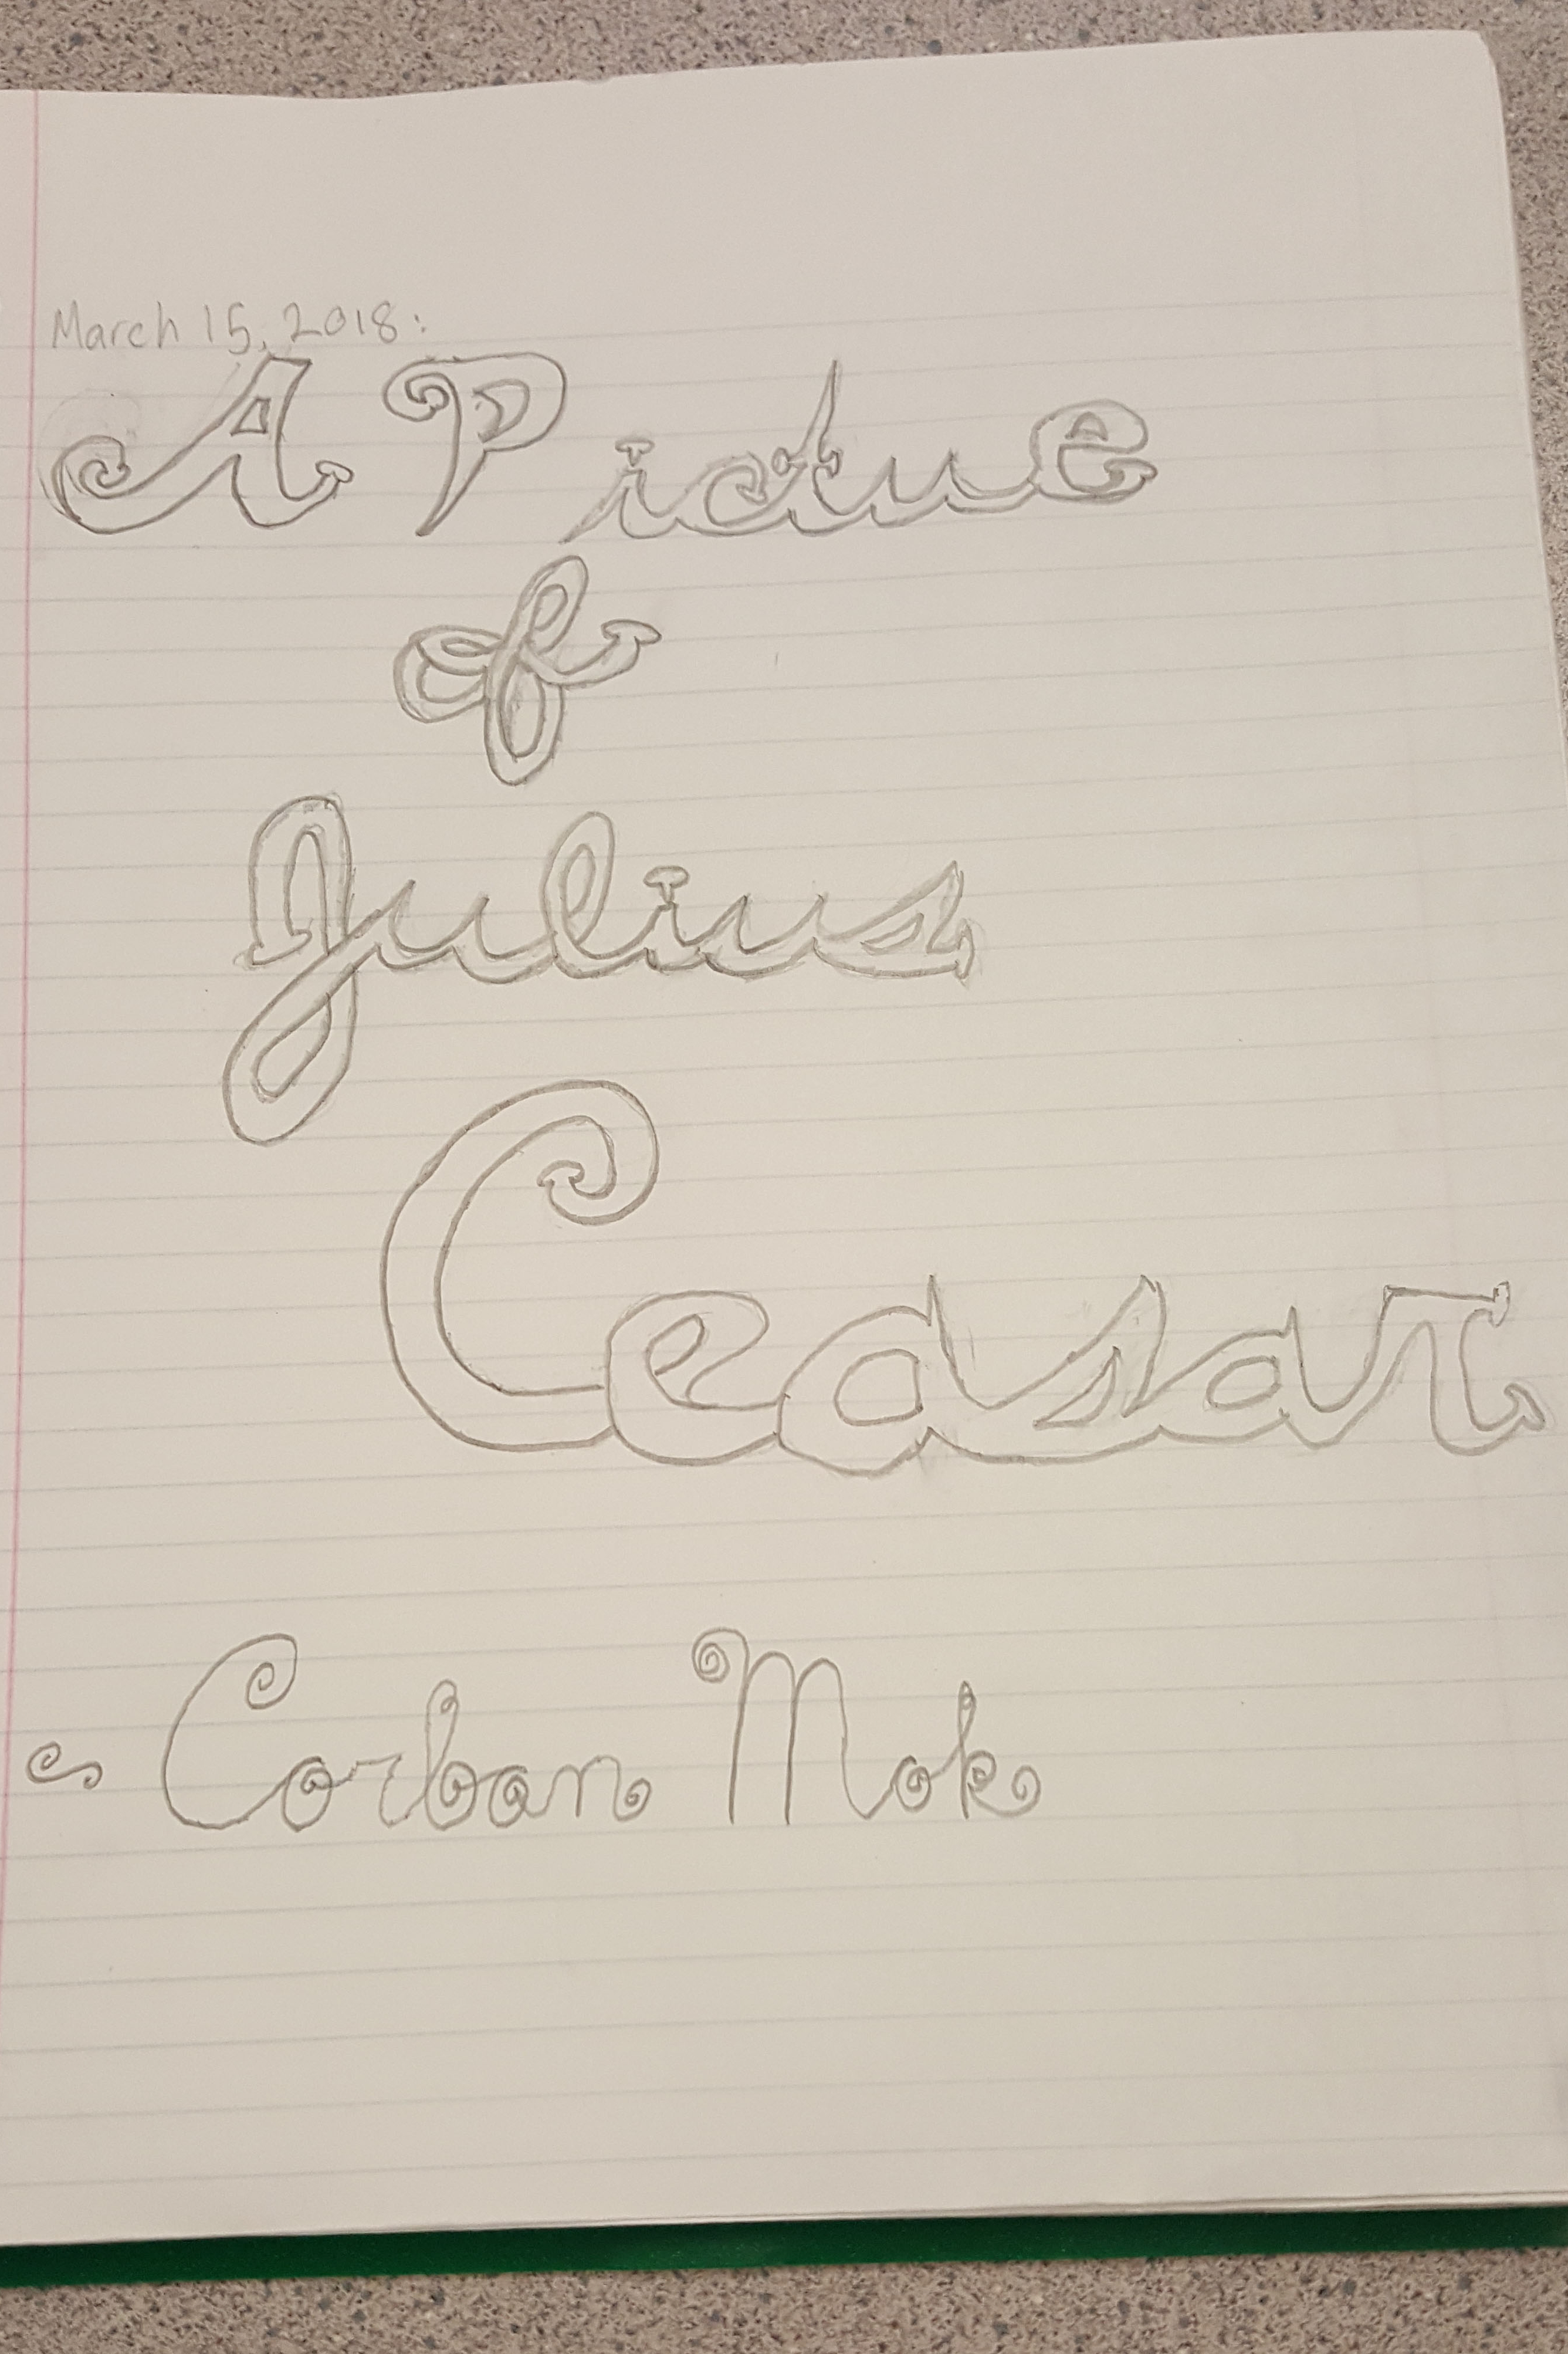 March 15, 2018:
A Pictue
of
Julius
Ceasar
~ Corban Mok